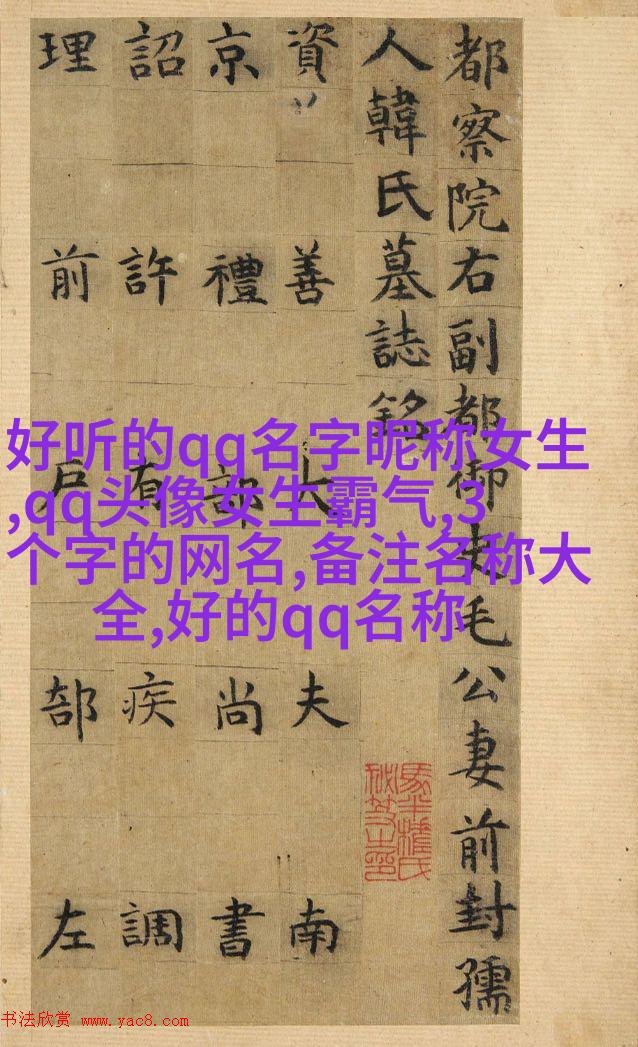 都察院右副都御史毛公妻前封孺
人韓氏墓誌銘
資善大夫南
京禮部尚書
詔許有疾調
理前戶部左
好听的qq名字昵称女生
,qq头像女生霸气,3
个字的网名,备注名称大
全,好的qq名称
书法欣赏 www.yac8.com